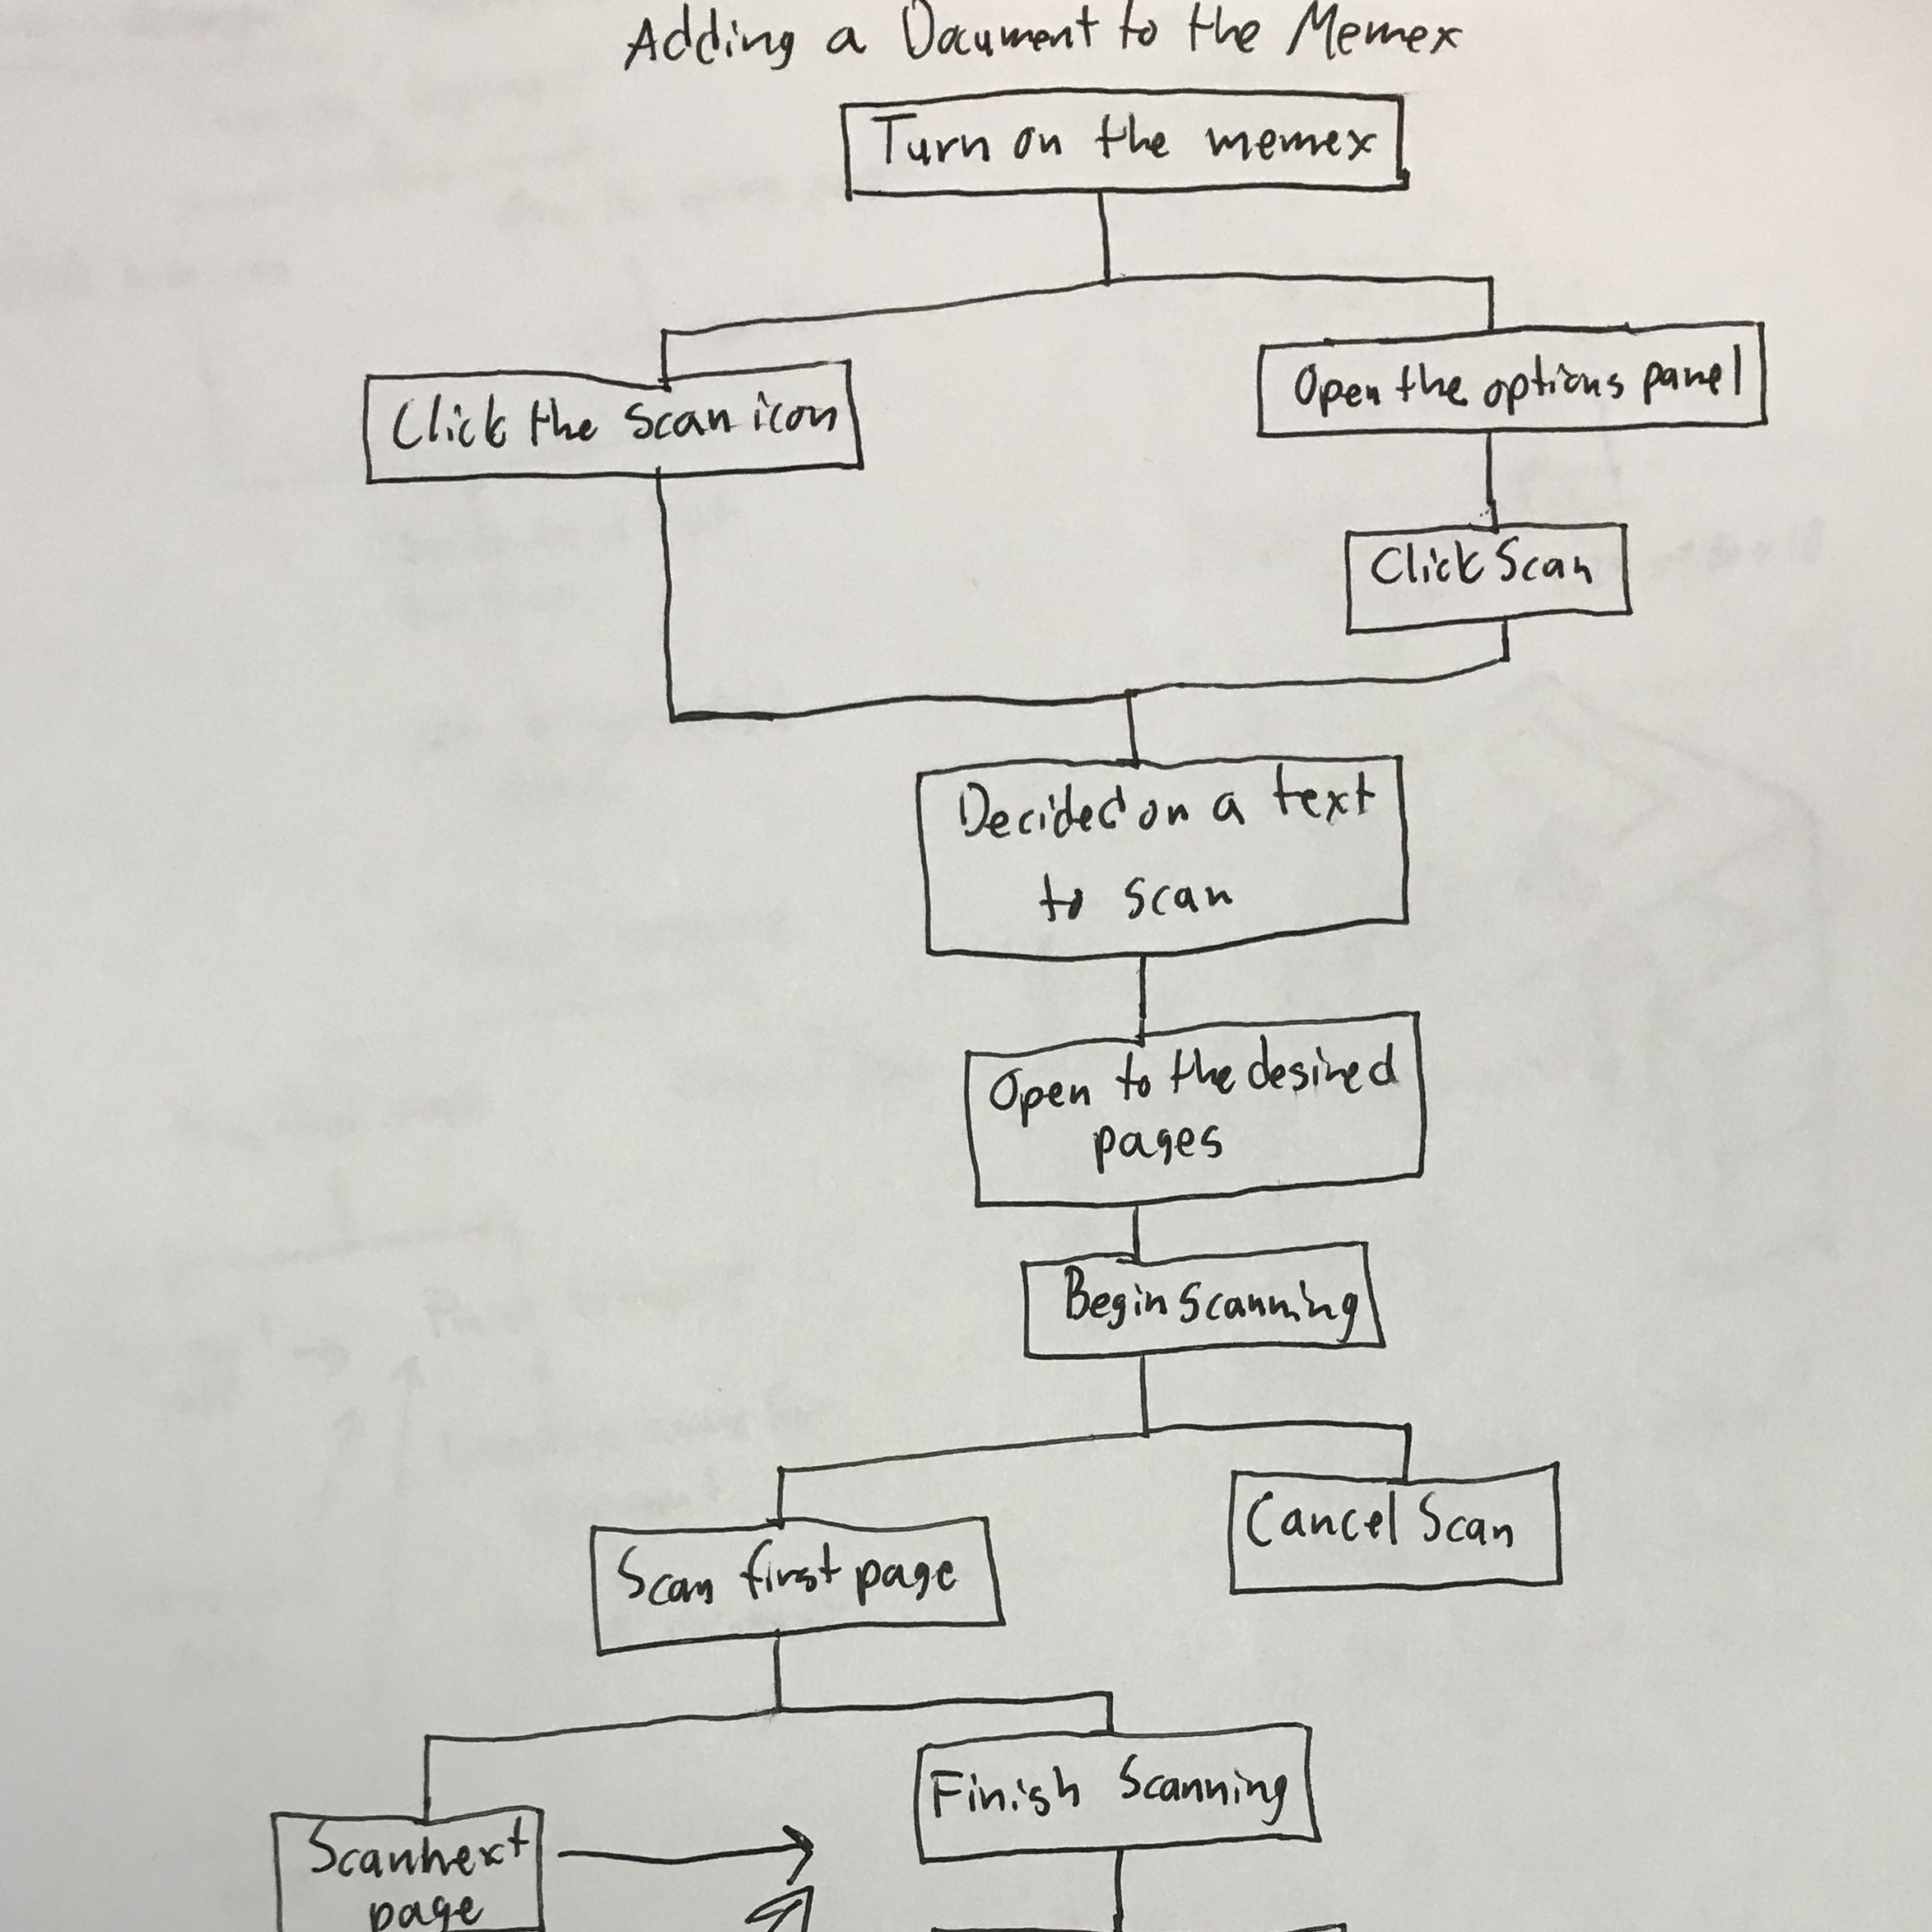 Adding a Document to the Memex
Turn on the memex
Click the scan icon
Open the options panel
Click Scan
Decided on a text
to scan
Open to the desired
pages
Begin scanning
Scan first page
Cancel Scan
Scan next
page
Finish Scanning